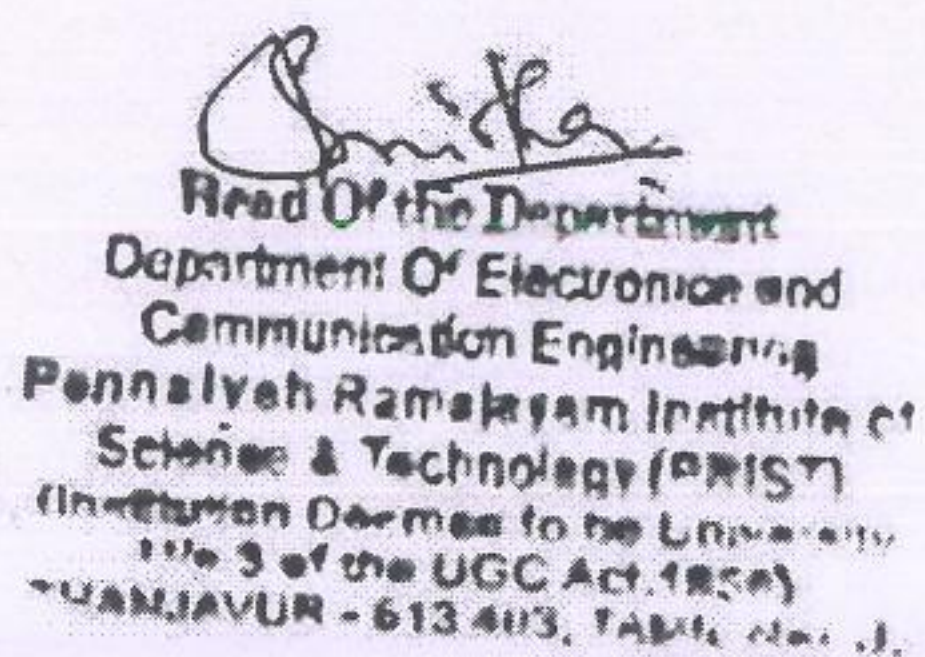 Head Of the Department
Department Of Electronics and
Communication Engineering
Ponnaiyah Ramajayam Institute of
Science & Technology (PRIST)
(Institution Deemed to be University
3 of the UGC Act, 1956)
THANJAVUR - 613 403, TAMIL